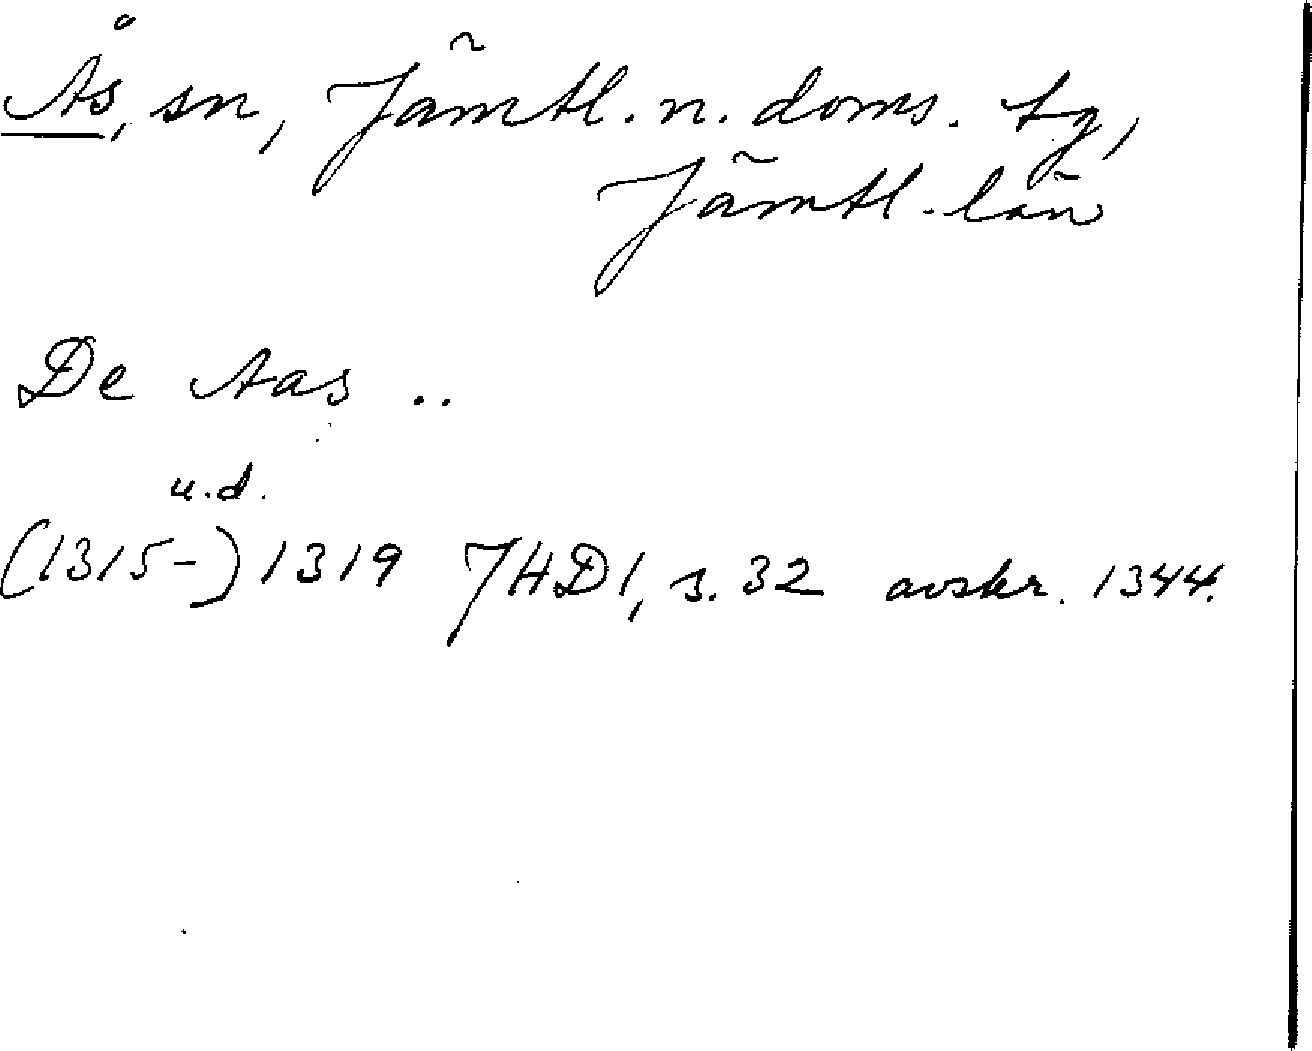 Ås, sn, Jämtl. n. doms. tg,
Jämtl. län
De Aas ..
u.d.
(1315-) 1319 JHD1, s. 32 avskr. 1344.